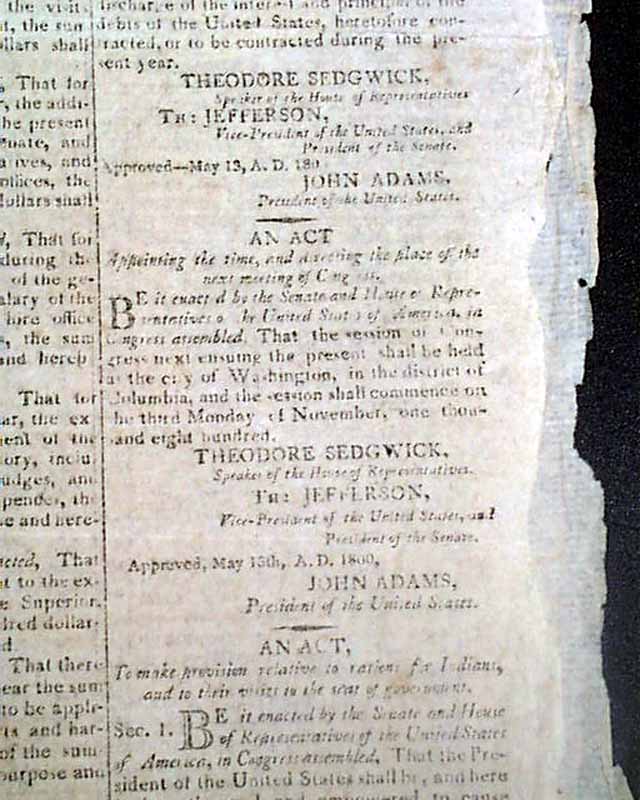 the visit
t, the sum
ollars shall
That for
r, the addi-
he present
enate, and
atives, and
offices, the
dollars shall
d, That for
during the
of the ge-
alary of the
fore office
s, the sum
and hereb
That for
ar, the ex
ment of the
ory, inclu
udges, and
spender, the
e and here-
acted, That
t to the ex-
e Superior
dred dollar-
d.
That there
ear the sum
to be appli-
ts and har-
of the sum
purpose and
discharge of the interest and principal of the
debts of the United States, heretofore con-
tracted, or to be contracted during the pre-
sent year.
THEODORE SEDGWICK,
Speaker of the House of Representatives
TH: JEFFERSON,
Vice-President of the United States, and
President of the Senate.
Approved—May 13, A. D. 180
JOHN ADAMS,
President of the United States.
AN ACT
Appointing the time, and directing the place of the
next meeting of Congress.
BE it enact d by the Senate and House of Repre-
sentatives o he United States of America, in
Congress assembled, That the session of Con-
gress next ensuing the present shall be held
at the city of Washington, in the district of
Columbia, and the session shall commence on
the third Monday of November, one thou-
sand eight hundred.
THEODORE SEDGWICK,
Speaker of the House of Representatives.
TH: JEFFERSON,
Vice-President of the United States, and
President of the Senate.
Approved, May 13th, A. D. 1800,
JOHN ADAMS,
President of the United States.
AN ACT,
To make provision relative to rations for Indians,
and to their visits to the seat of government.
Sec. 1. BE it enacted by the Senate and House
of Representatives of the United States
of America, in Congress assembled, That the Pre-
sident of the United States shall be, and here
and empowered to cause